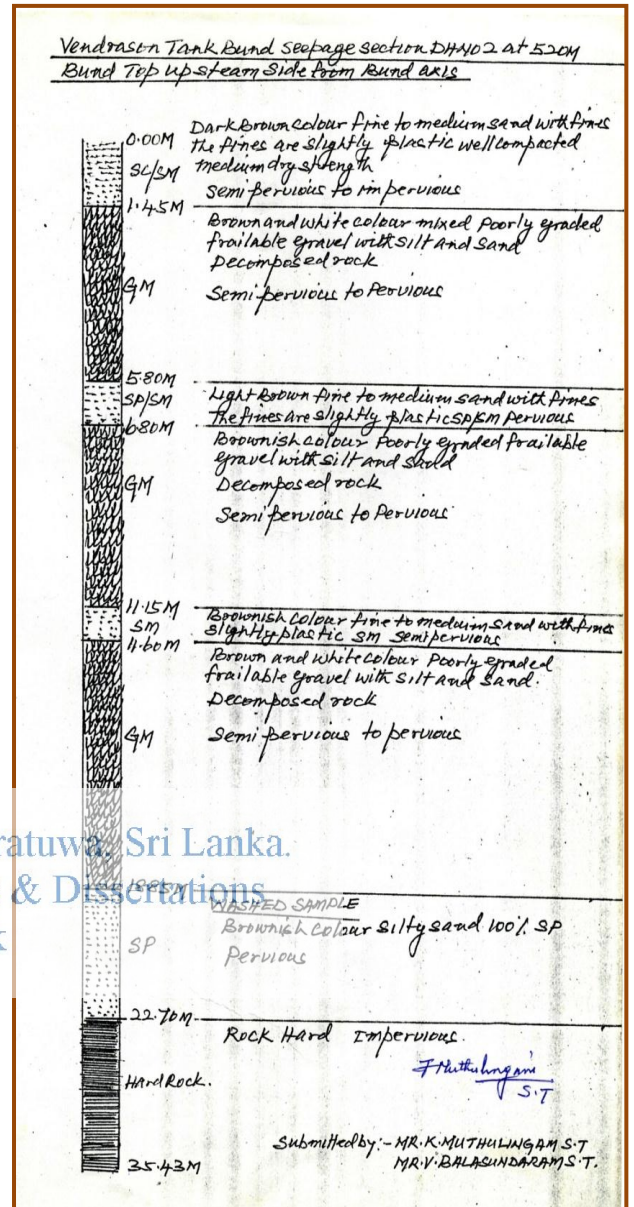 Vendrason Tank Bund Seepage section DH402 at 520M
Bund Top upsteam Side from Bund axis
0.00M
SC/SM
Dark Brown colour fine to medium sand with fines
the fines are slightly plastic well compacted
medium dry strength
Semi pervious to impervious
1.45M
Brown and white colour mixed Poorly graded
frailable gravel with silt and sand
Decomposed rock
GM
Semi pervious to Pervious
5.80M
SP/SM
Light Brown fine to medium sand with fines
The fines are slightly plastic SP/SM Pervious
6.80M
Brownish colour Poorly graded frailable
gravel with silt and sand
GM
Decomposed rock
Semi pervious to Pervious
11.15M
SM
Brownish colour fine to medium sand with fines
slightly plastic SM Semipervious
4.60M
Brown and white colour Poorly graded
frailable gravel with silt and sand.
Decomposed rock
GM
Semi pervious to pervious
ratuwa, Sri Lanka.
& Dissertations
k
WASHED SAMPLE
Brownish colour silty sand 100% SP
SP
Pervious
22.70M
Rock Hard Impervious.
Hard Rock.
S.T
Submitted by:- MR.K.MUTHULINGAM S.T
MR.V.BALASUNDARAM S.T.
35.43M